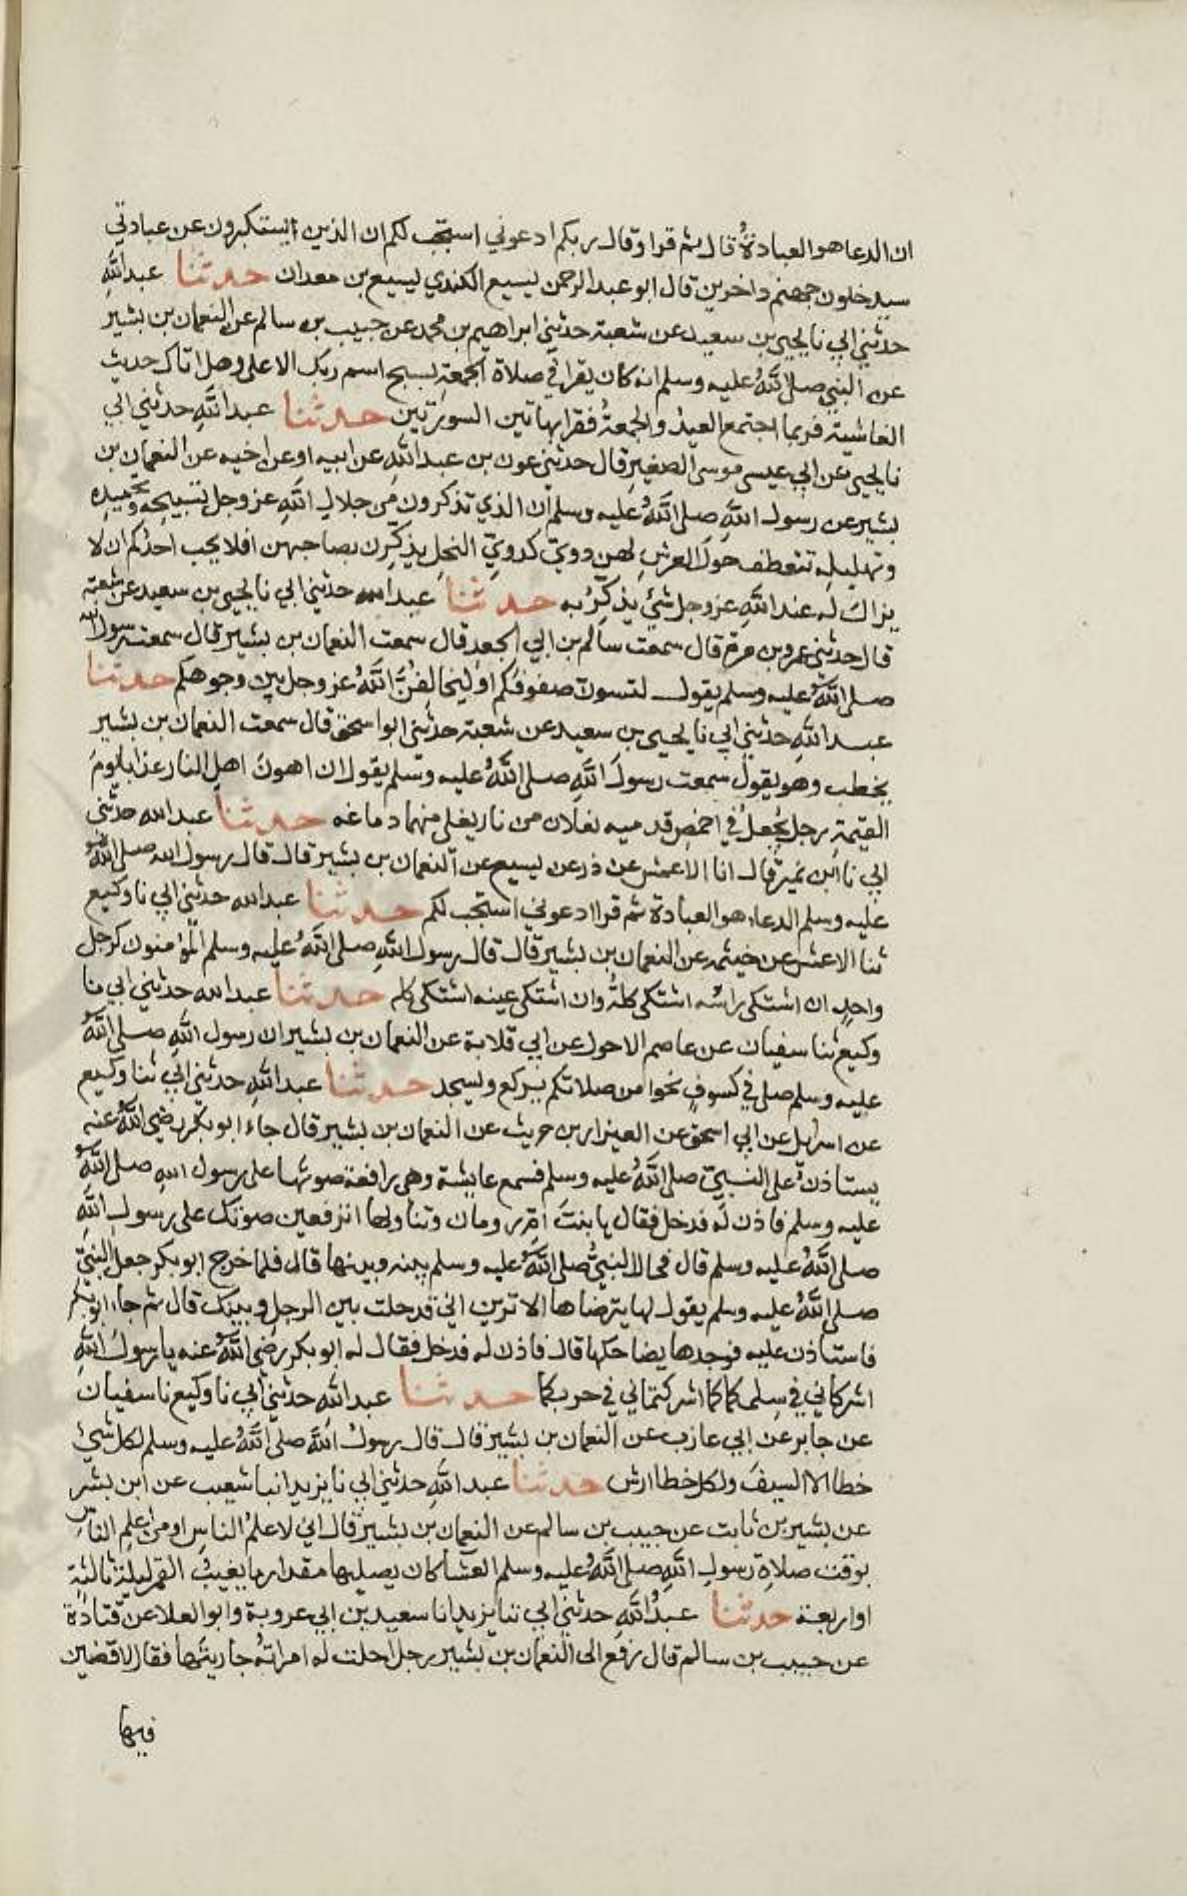 ان الدعا هو العبادة قال ثم قرا وقال ربكم ادعوني استجب لكم ان الذين يستكبرون عن عبادتي
سيدخلون جهنم داخرين قال ابو عبد الرحمن يسيع الكندي يسيع بن معدان حدثنا عبد الله
حدثني ابي نا يحيى بن سعيد عن شعبة حدثني ابراهيم بن محمد عن حبيب بن سالم عن النعمان بن بشير
عن النبي صلى الله عليه وسلم انه كان يقرا في صلاة الجمعة بسبح اسم ربك الاعلى وهل اتاك حديث
الغاشية فربما اجتمع العيد والجمعة فقرا بهاتين السورتين حدثنا عبد الله حدثني ابي
نا يحيى عن ابي عيسى موسى الصغير قال حدثني عون بن عبد الله عن ابيه او عن اخيه عن النعمان بن
بشير عن رسول الله صلى الله عليه وسلم ان الذي تذكرون من جلال الله عز وجل تسبيحه وتحميده
وتهليله تتعطف حول العرش لهن دوي كدوي النحل يذكرن بصاحبهن افلا يحب احدكم ان لا
يزال له عند الله عز وجل شئ يذكر به حدثنا عبد الله حدثني ابي نا يحيى بن سعيد عن شعبة
قال حدثني عمرو بن مرة قال سمعت سالم بن ابي الجعد قال سمعت النعمان بن بشير قال سمعت رسول الله
صلى الله عليه وسلم يقول لتسون صفوفكم او ليخالفن الله عز وجل بين وجوهكم حدثنا
عبد الله حدثني ابي نا يحيى بن سعيد عن شعبة حدثني ابو اسحق قال سمعت النعمان بن بشير
يخطب وهو يقول سمعت رسول الله صلى الله عليه وسلم يقول ان اهون اهل النار عذابا يوم
القيمة رجل يجعل في اخمص قدميه نعلان من نار يغلي منهما دماغه حدثنا عبد الله حدثني
ابي نا ابن نمير قال انا الاعمش عن ذر عن يسيع عن النعمان بن بشير قال قال رسول الله صلى الله
عليه وسلم الدعاء هو العبادة ثم قرا ادعوني استجب لكم حدثنا عبد الله حدثني ابي نا وكيع
ثنا الاعمش عن خيثمة عن النعمان بن بشير قال قال رسول الله صلى الله عليه وسلم المؤمنون كرجل
واحد ان اشتكى راسه اشتكى كله وان اشتكى عينه اشتكى كله حدثنا عبد الله حدثني ابي نا
وكيع ثنا سفيان عن عاصم الاحول عن ابي قلابة عن النعمان بن بشير ان رسول الله صلى الله
عليه وسلم صلى في كسوف نحوا من صلاتكم يركع ويسجد حدثنا عبد الله حدثني ابي ثنا وكيع
عن اسرايل عن ابي اسحق عن العيزار بن حريث عن النعمان بن بشير قال جاء ابو بكر رضي الله عنه
يستاذن على النبي صلى الله عليه وسلم فسمع عايشة وهي رافعة صوتها على رسول الله صلى الله
عليه وسلم فاذن له فدخل فقال يا بنت ام رومان وتناولها اترفعين صوتك على رسول الله
صلى الله عليه وسلم قال فحال النبي صلى الله عليه وسلم بينه وبينها قال فلما خرج ابو بكر جعل النبي
صلى الله عليه وسلم يقول لها يترضاها الا ترين اني قد حلت بين الرجل وبينك قال ثم جاء ابو بكر
فاستاذن عليه فوجدها يضاحكها قال فاذن له فدخل فقال له ابو بكر رضي الله عنه يا رسول الله
اشركاني في سلمكما كما اشركتماني في حربكما حدثنا عبد الله حدثني ابي نا وكيع نا سفيان
عن جابر عن ابي عازب عن النعمان بن بشير قال قال رسول الله صلى الله عليه وسلم لكل شئ
خطا الا السيف ولكل خطا ارش حدثنا عبد الله حدثني ابي نا يزيد انبا شعيب عن ابن بشر
عن بشير بن ثابت عن حبيب بن سالم عن النعمان بن بشير قال اني لاعلم الناس او من اعلم الناس
بوقت صلاة رسول الله صلى الله عليه وسلم العشا كان يصليها مقدار ما يغيب القمر ليلة ثالثة
او اربعة حدثنا عبد الله حدثني ابي ثنا يزيد انا سعيد بن ابي عروبة وابو العلا عن قتادة
عن حبيب بن سالم قال رفع الى النعمان بن بشير رجل احلت له امراته جاريتها فقال لاقضين
فيها